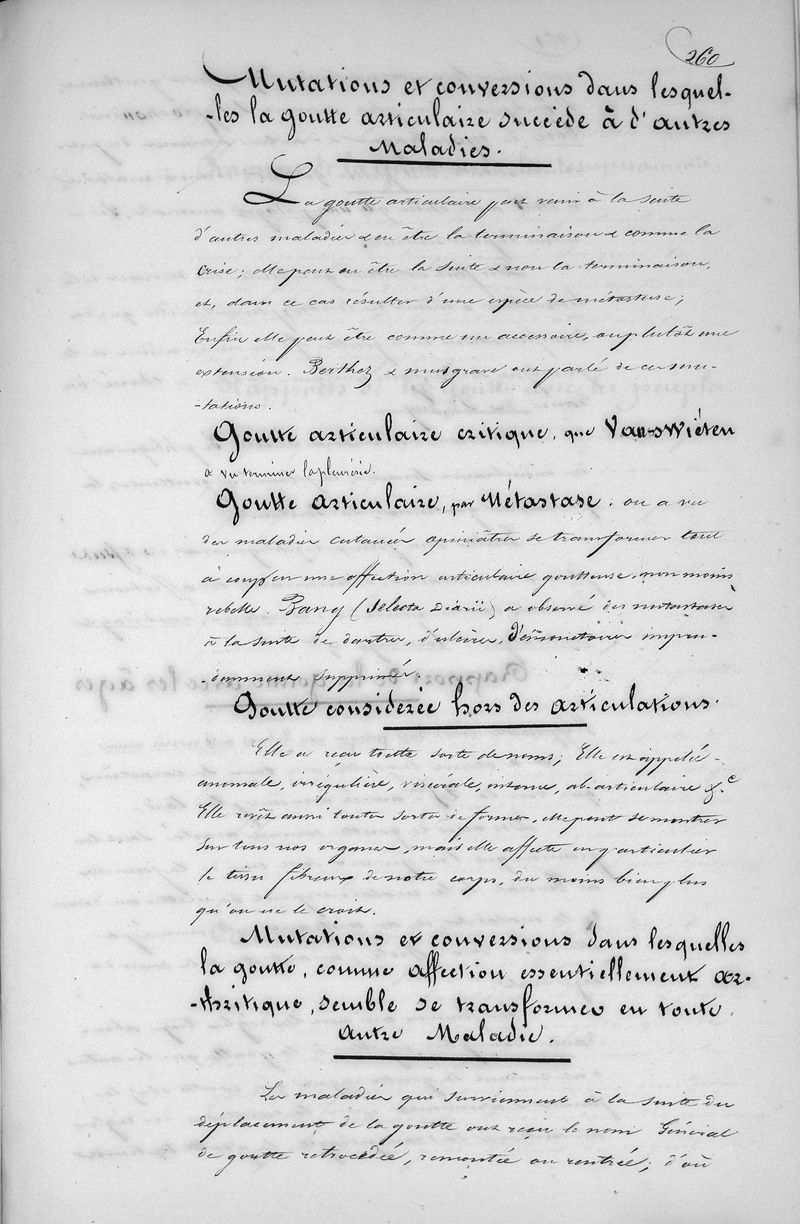 260
Mutations et conversions dans lesquel-
-les la goutte articulaire succède à d'autres
Maladies.
La goutte articulaire peut venir à la suite
d'autres maladies & en être la terminaison & comme la
crise; elle peut en être la suite & non la terminaison,
et, dans ce cas résulter d'une espèce de métastase;
Enfin elle peut être comme un accessoire, ou plutôt une
extension. Berthez & musgrave ont parlé de ces mu-
-tations.
Goutte articulaire critique, que Van-swiéten
a vu terminer la pleurésie.
Goutte articulaire, par Métastase. on a vu
des maladies cutanées opiniâtres se transformer tout
à coup en une affection articulaire goutteuse, non moins
rebelle. Bang (Selecta Diarii) a observé des métastases
à la suite de dartres, d'ulcères, d'émonctoires impru-
-demment supprimés.
Goutte considerée hors des articulations.
Elle a reçu toutte sorte de noms; Elle est appelée
anomale, irrégulière, viscérale, interne, ab-articulaire &.c
Elle revêt aussi toutes sortes de formes, elle peut se montrer
sur tous nos organes, mais elle affecte en particulier
le tissu fibreux de notre corps, du moins bien plus
qu'on ne le croit.
Mutations et conversions dans lesquelles
la goutte, comme affection essentiellement ar-
-thritique, semble se transformer en toute
autre Maladie.
Les maladies qui surviennent à la suite du
déplacement de la goutte ont reçu le nom Général
de goutte retrocedée, remontée ou rentrée; d'où